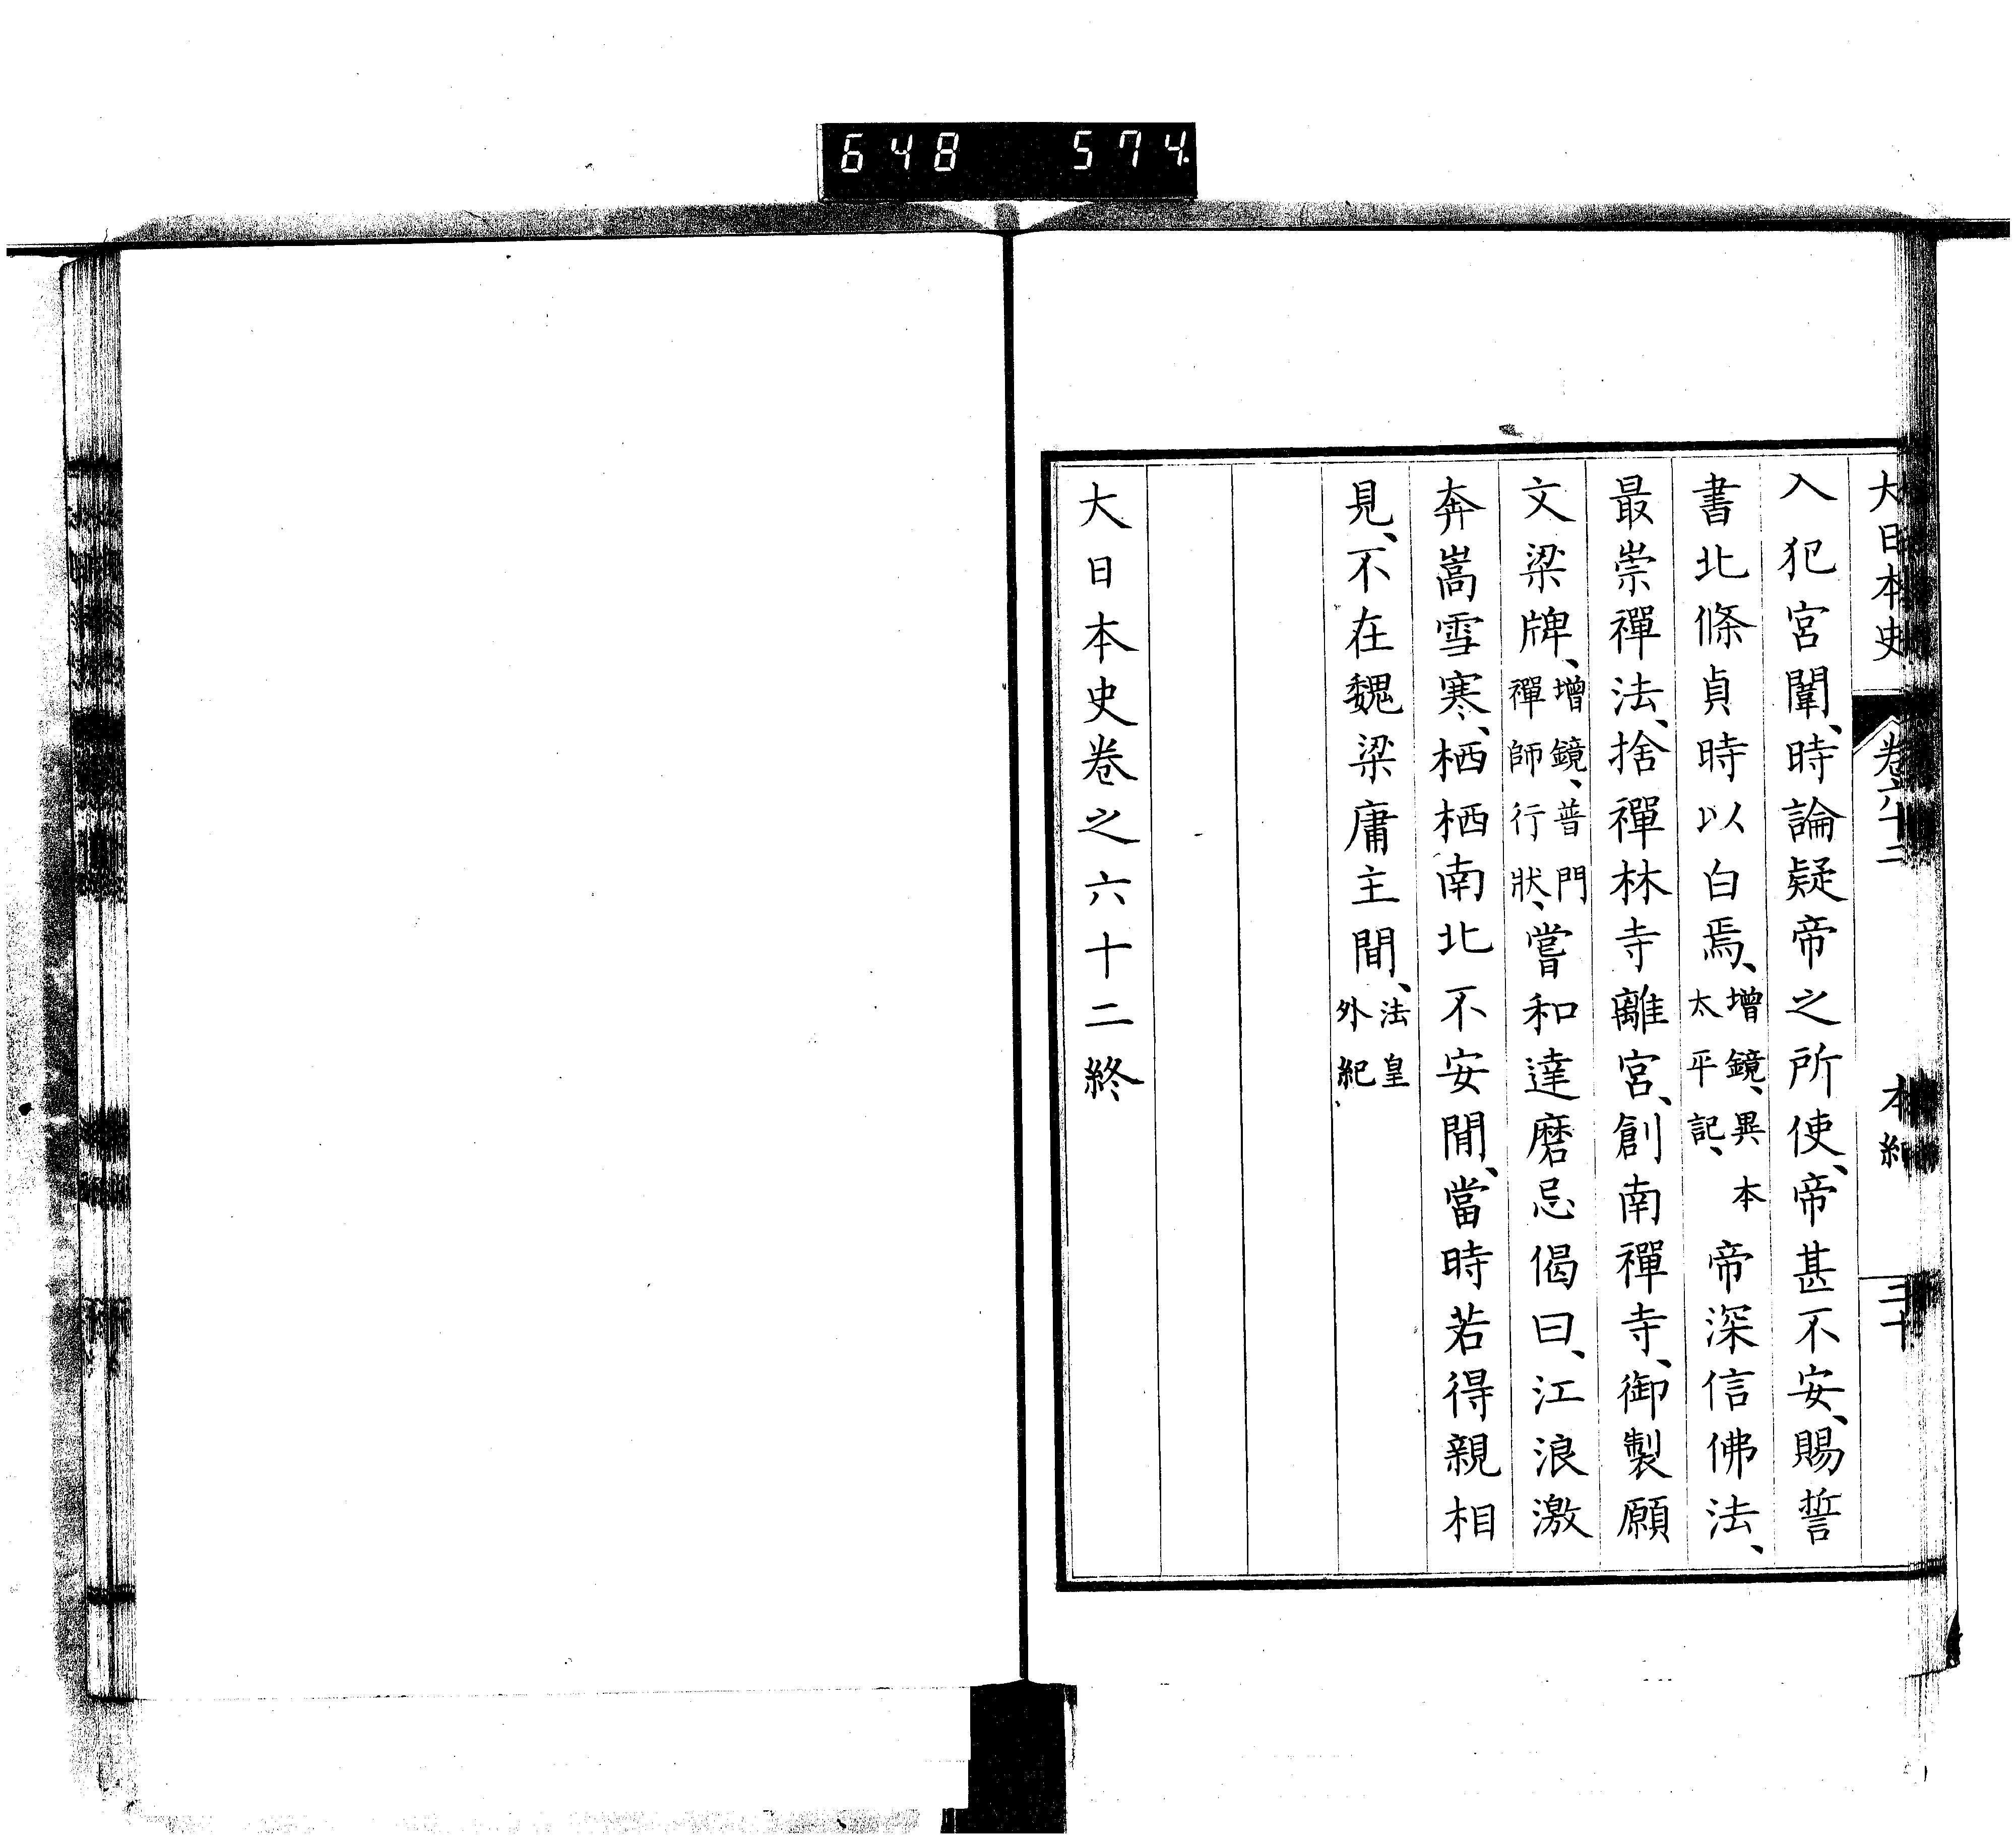 648 574
大日本史 卷六十二 本紀 三十
入犯宮闈、時論疑帝之所使、帝甚不安、賜誓
書北條貞時以白焉、增鏡、異本太平記、帝深信佛法、
最崇禪法、捨禪林寺離宮、創南禪寺、御製願
文梁牌、增鏡、普門禪師行狀、嘗和達磨忌偈曰、江浪激
奔嵩雪寒、栖栖南北不安閒、當時若得親相
見、不在魏梁庸主間、法皇外紀
大日本史卷之六十二終